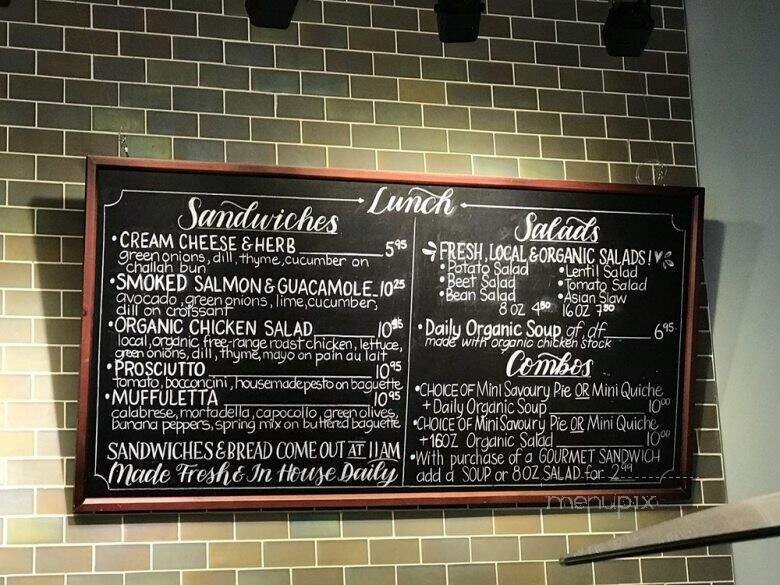 Lunch
Sandwiches
• CREAM CHEESE & HERB 5.95
green onions, dill, thyme, cucumber on
challah bun
• SMOKED SALMON & GUACAMOLE 10.25
avocado, green onions, lime, cucumber,
dill on croissant
• ORGANIC CHICKEN SALAD 10
local, organic free-range roast chicken, lettuce,
green onions, dill, thyme, mayo on pain au lait
• PROSCIUTTO 10.95
tomato, bocconcini, housemade pesto on baguette
• MUFFULETTA 10.95
calabrese, mortadella, capocollo, green olives,
banana peppers, spring mix on buttered baguette
SANDWICHES & BREAD COME OUT AT 11AM
Made Fresh & In House Daily
Salads
FRESH, LOCAL & ORGANIC SALADS!
• Potato Salad • Lentil Salad
• Beet Salad • Tomato Salad
• Bean Salad • Asian Slaw
8 OZ 4.50 16 OZ 7.50
• Daily Organic Soup gf, df 6.95
made with organic chicken stock
Combos
• CHOICE OF Mini Savoury Pie OR Mini Quiche
+ Daily Organic Soup 10.00
• CHOICE OF Mini Savoury Pie OR Mini Quiche
+ 16OZ Organic Salad 10.00
• With purchase of a GOURMET SANDWICH
add a SOUP or 8 OZ SALAD for 2.99
menupix